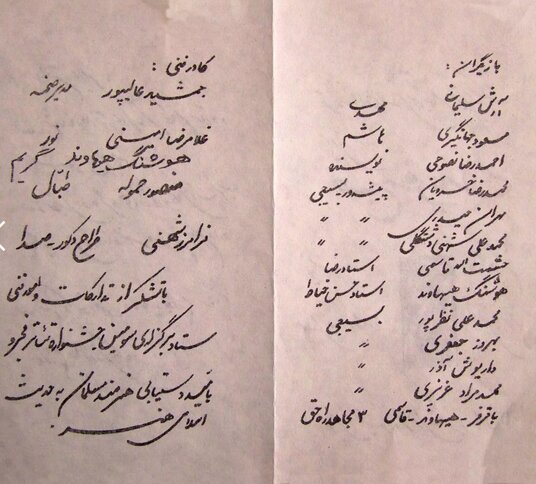 بازیگران :
آرش سلیمان مهدی
مسعود جهانگیری هاشم
احمدرضا نصوحی نویسنده
محمدرضا خسرویان پیشدور بسیجی
مهران حیدری " "
محمدعلی شهنی دشتگلی " "
حشمت اله قاسمی استاد رضا
هوشنگ هیهاوند استاد حسن خیاط
محمدعلی نظرپور بسیجی
بهروز جعفری "
داریوش آذر "
محمدمراد عزیزی "
باقرفر - هیهاوند - قاسمی ۳ مجاهد راه حق
کادر فنی :
جمشید عالیپور مدیر صحنه
غلامرضا امینی نور
هوشنگ هیهاوند گریم
منصور حموله طبال
فرامرز شهنی طراح دکور - صدا
با تشکر از تدارکات و امور فنی
ستاد برگزاری سومین جشنواره تئاتر فجر و
با امید دستیابی هنرمند مسلمان به حدیث
اسلامی هنر .